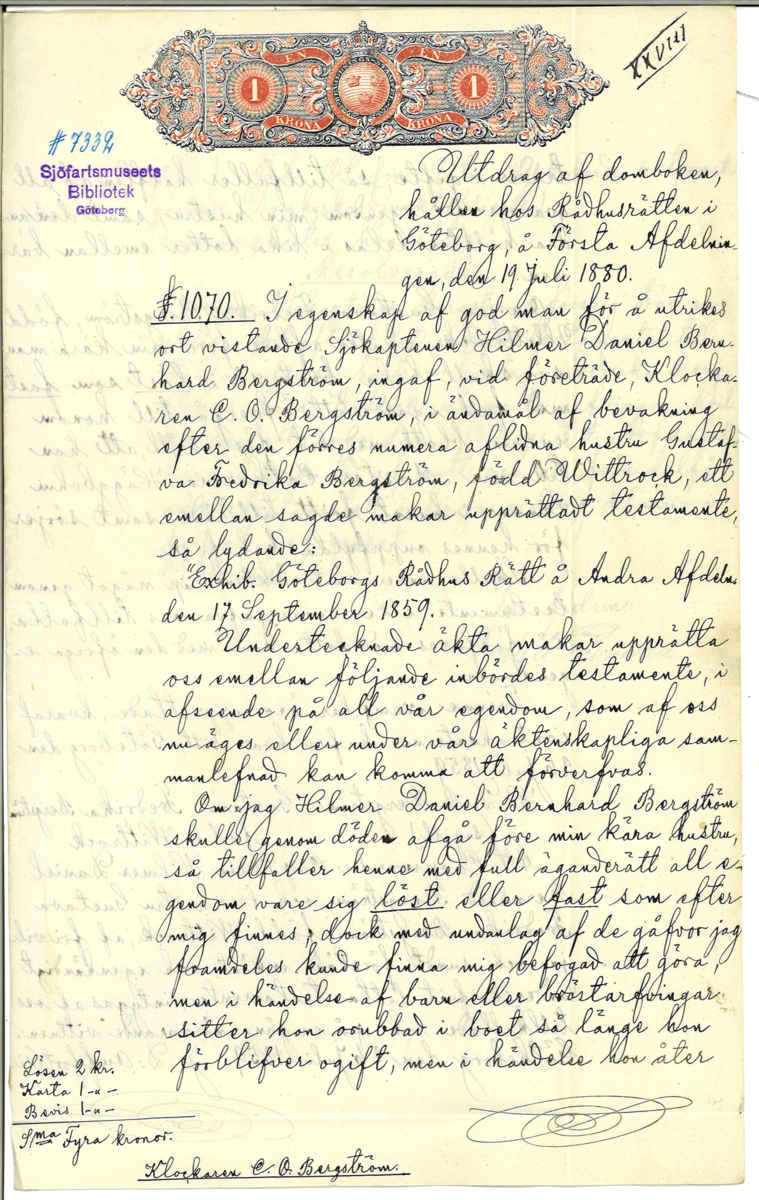 XXVIII
EN EN
1 1
KRONA KRONA
# 7332
Sjöfartsmuseets
Bibliotek
Göteborg
Utdrag af domboken,
hållen hos Rådhusrätten i
Göteborg, å Första Afdelnin-
gen, den 19 Juli 1880.
§. 1070. I egenskap af god man för å utrikes
ort vistande Sjökaptenen Hilmer Daniel Bern-
hard Bergström, ingaf, vid företräde, Klocka-
ren C. O. Bergström, i ändamål af bevakning
efter den förres numera aflidna hustru Gustaf-
va Fredrika Bergström, född Wittrock, ett
emellan sagde makar upprättadt testamente,
så lydande:
"Exhib. Göteborgs Rådhus Rätt å Andra Afdeln.
den 17 September 1859.
Undertecknade äkta makar upprätta
oss emellan följande inbördes testamente, i
afseende på all vår egendom, som af oss
nu äges eller under vår äktenskapliga sam-
manlefnad kan komma att förverfvas.
Om jag Hilmer Daniel Bernhard Bergström
skulle genom döden afgå före min kära hustru,
så tillfaller henne med full äganderätt all e-
gendom vare sig löst eller fast som efter
mig finnes, dock med undantag af de gåfvor jag
framdeles kunde finna mig befogad att göra,
men i händelse af barn eller bröstarfvingar
sitter hon orubbad i boet så länge hon
förblifver ogift, men i händelse hon åter
Lösen 2 kr.
Karta 1 -"-
Bevis 1 -"-
Sma Fyra kronor.
Klockaren C. O. Bergström.